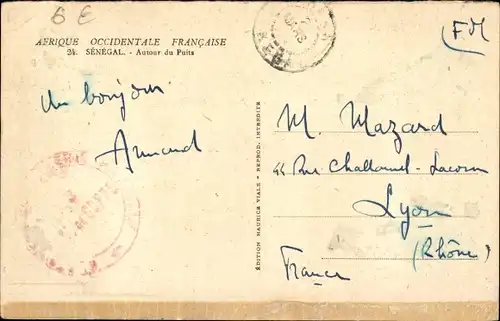 6 €
AFRIQUE OCCIDENTALE FRANÇAISE
24. SÉNÉGAL. - Autour du Puits
FM
Un bonjour
Armand
M. Mazard
44 Rue Challamel-Lacour
Lyon
(Rhône)
France
ÉDITION MAURICE VIALE - REPROD. INTERDITE